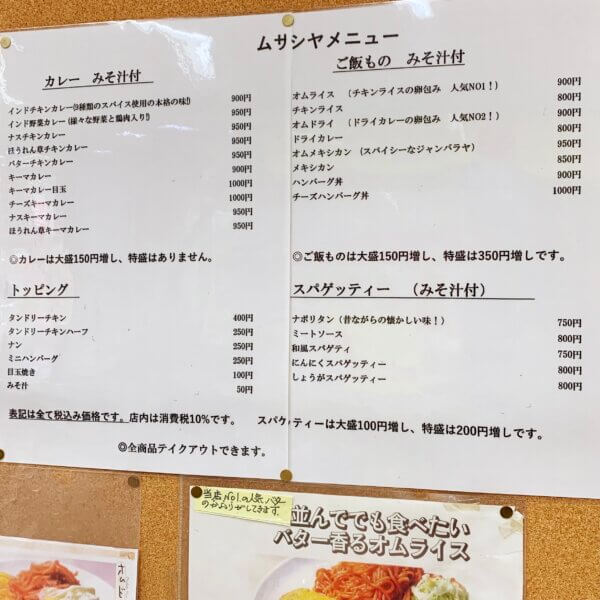 ムサシヤメニュー
カレー みそ汁付
インドチキンカレー(9種類のスパイス使用の本格の味!) 900円
インド野菜カレー(様々な野菜と鶏肉入り!) 950円
ナスチキンカレー 950円
ほうれん草チキンカレー 950円
バターチキンカレー 950円
キーマカレー 900円
キーマカレー目玉 1000円
チーズキーマカレー 1000円
ナスキーマカレー 950円
ほうれん草キーマカレー 950円
◎カレーは大盛150円増し、特盛はありません。
トッピング
タンドリーチキン 400円
タンドリーチキンハーフ 250円
ナン 250円
ミニハンバーグ 250円
目玉焼き 100円
みそ汁 50円
表記は全て税込み価格です。店内は消費税10%です。
◎全商品テイクアウトできます。
ご飯もの みそ汁付
オムライス (チキンライスの卵包み 人気NO1!) 900円
チキンライス 800円
オムドライ (ドライカレーの卵包み 人気NO2!) 900円
ドライカレー 800円
オムメキシカン (スパイシーなジャンバラヤ) 950円
メキシカン 850円
ハンバーグ丼 900円
チーズハンバーグ丼 1000円
◎ご飯ものは大盛150円増し、特盛は350円増しです。
スパゲッティー (みそ汁付)
ナポリタン(昔ながらの懐かしい味!) 750円
ミートソース 800円
和風スパゲティ 750円
にんにくスパゲッティー 800円
しょうがスパゲッティー 800円
スパゲッティーは大盛100円増し、特盛は200円増しです。
当店No1.の人気 バター
のかおりがしてきます。
並んででも食べたい
バター香るオムライス